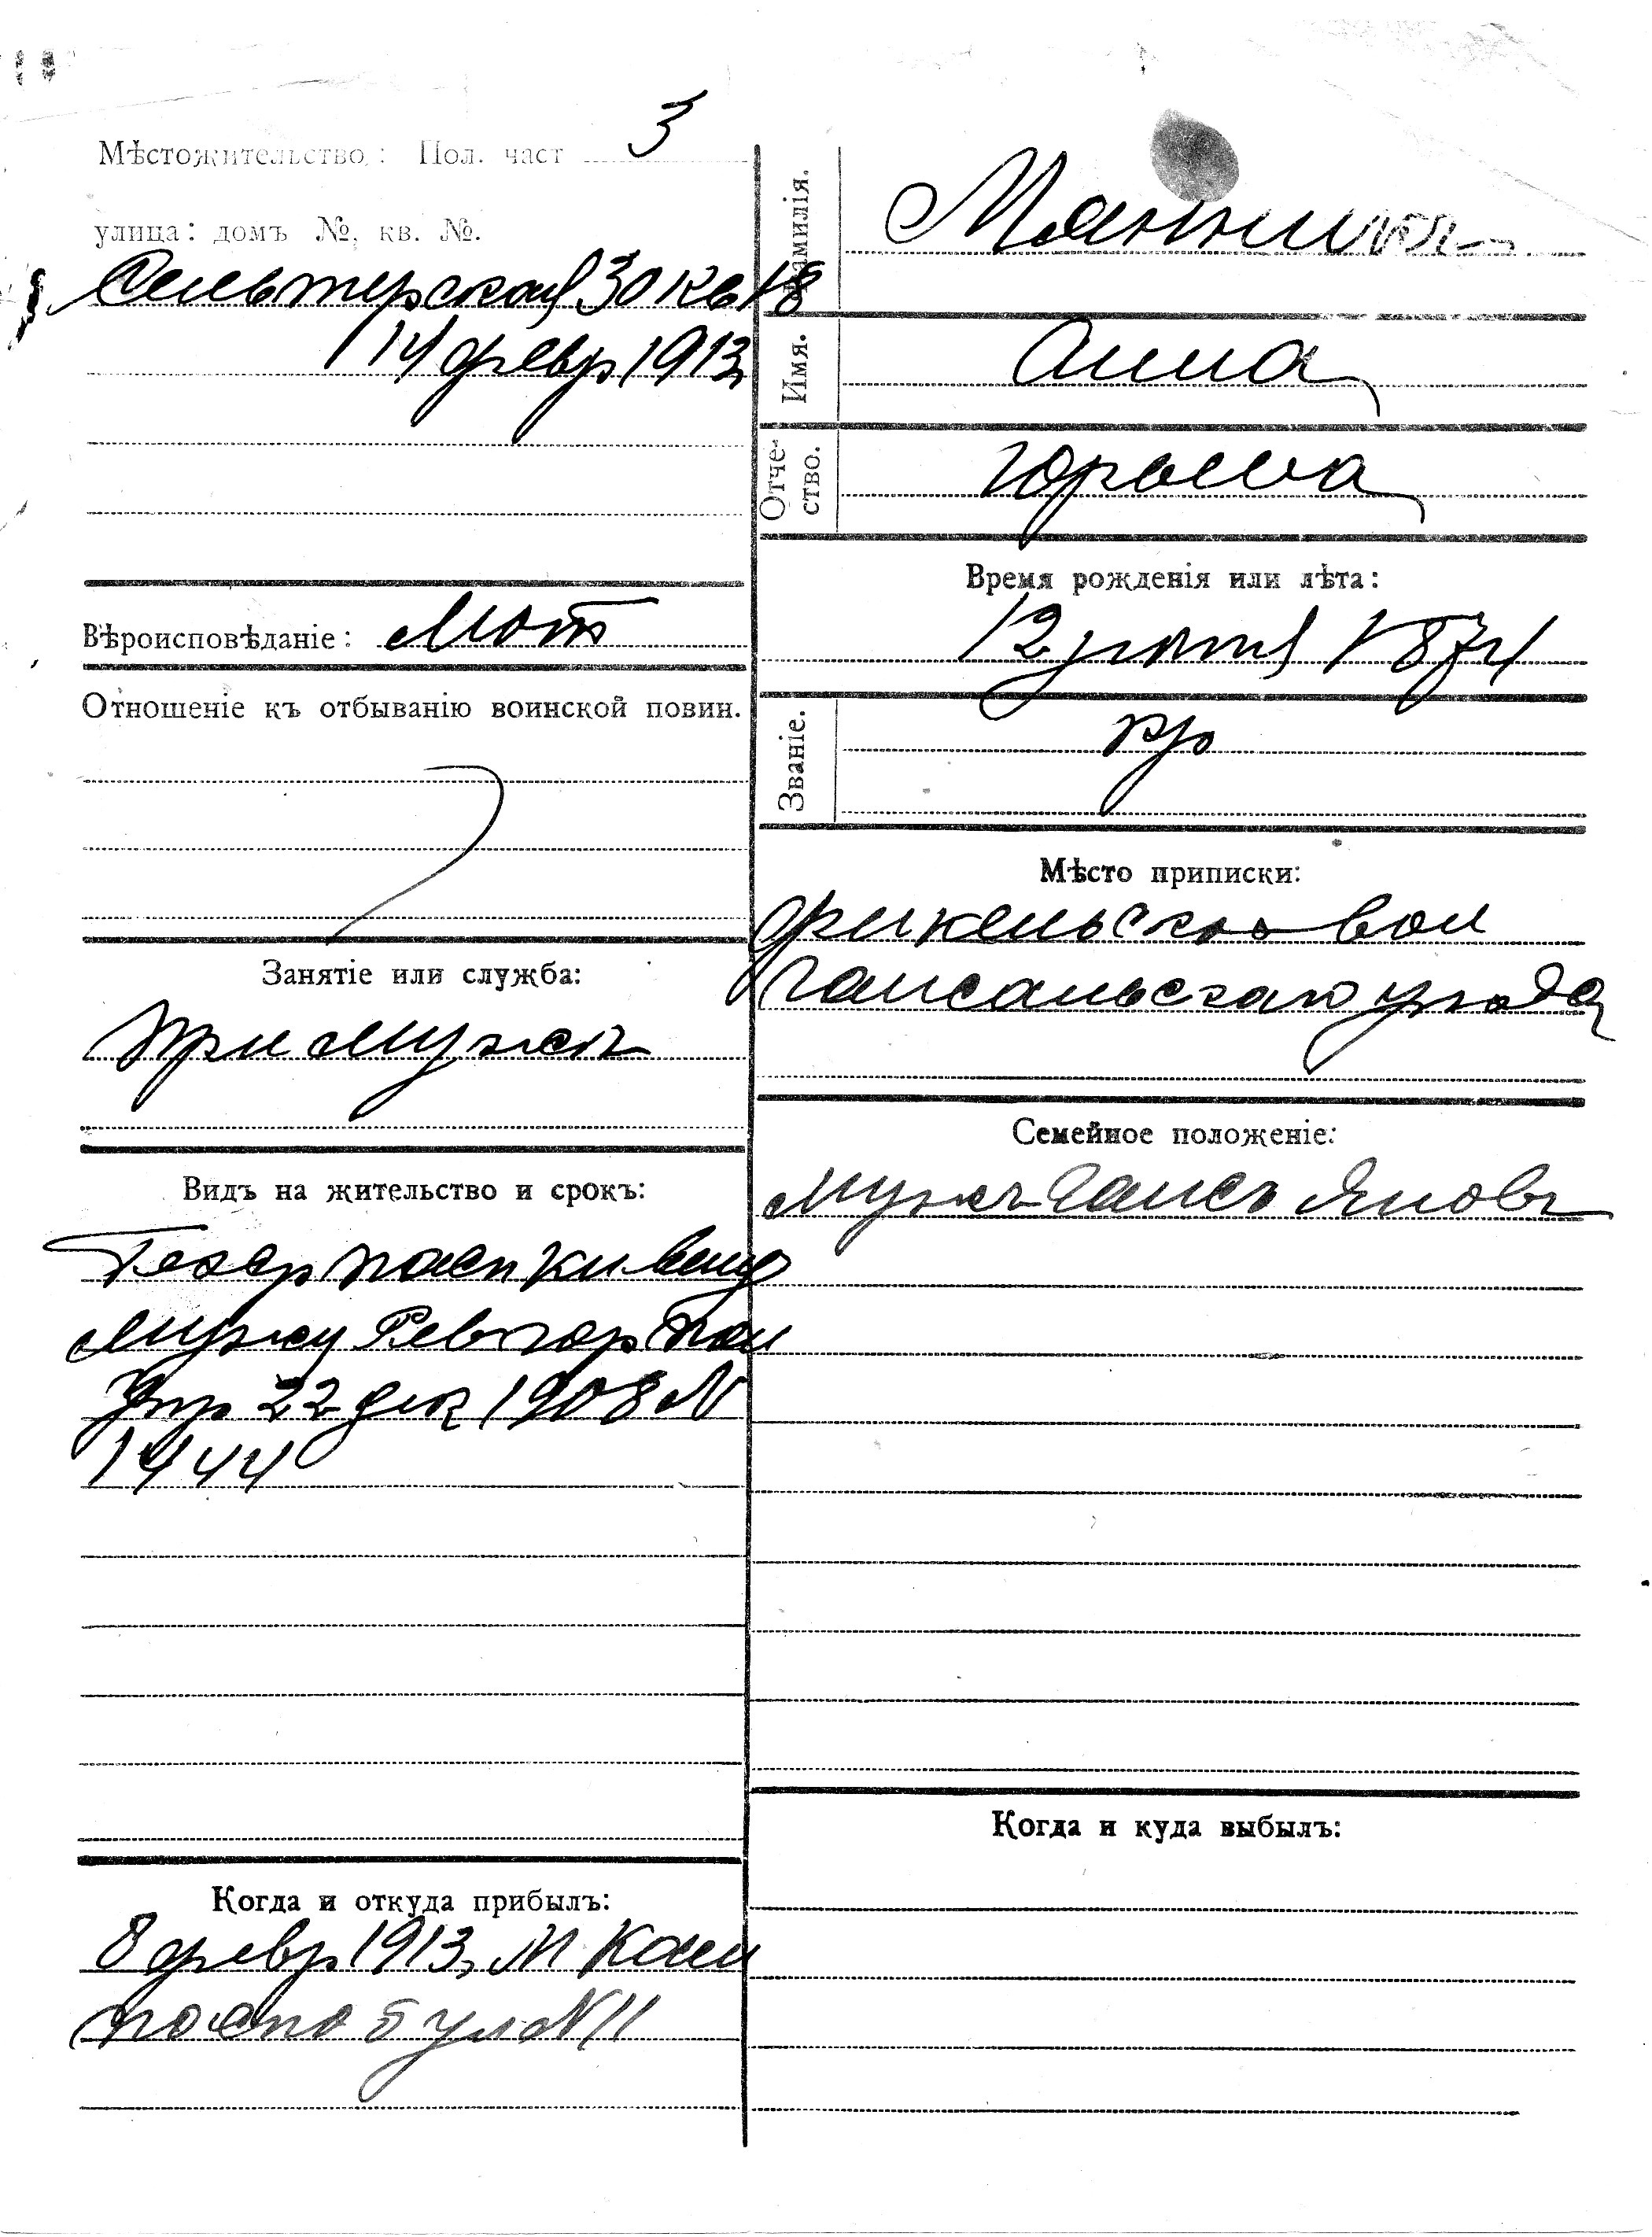 Мѣстожительство: Пол. част 3
улица: домъ №, кв. №.
Сельтерская 30 кв 18
14 февр 1913
Вѣроисповѣданіе: Лют
Отношеніе къ отбыванію воинской повин.
Занятіе или служба:
При мужѣ
Видъ на жительство и срокъ:
пасп кн выд
мужу Рев гор Пол
Упр 22 дек 1908 N
1444
Когда и откуда прибылъ:
8 февр 1913, М
N 11
Фамилія.
Имя. Анна
Отчество. Юрьева
Время рожденія или лѣта:
12 1874
Званіе. кр
Мѣсто приписки:
Фикельской вол
Гапсальскаго уѣзда
Семейное положеніе:
Мужъ Гансъ Яновъ
Когда и куда выбылъ: